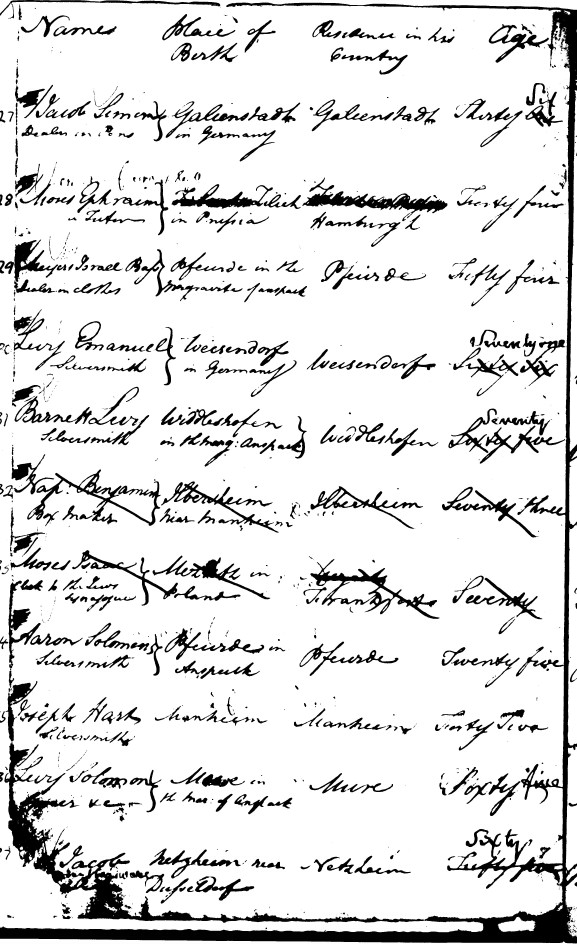 Names Place of Birth Residence in his Country Age
27 Jacob Simon Galienstadt Galienstadt Thirty Six
Dealer in Pens in Germany
28 Moses Ephraim Tilich Forty four
a Tutor in Prussia Hamburgh
29 Meyer Israel Pfeurde in the Pfeurde Fifty four
Dealer in clothes Margravite of anspach
Seventy one
Levy Emanuel Weisendorf Weisendorf Sixty Six
Silversmith in Germany
Seventy
31 Barnett Levy Widdleshofen Widdleshofen Sixty five
Silversmith in the marg: Anspach
32 Nap: Benjamin Ilbersheim Ilbersheim Seventy three
Box Maker near Manheim
Moses Isaac in Seventy
Clerk to the Jews Poland
Synagogue
Aaron Solomon Pfeurde in Pfeurde Twenty five
Silversmith Anspach
Joseph Hart Manheim Manheim Forty Two
Silversmith
Levy Solomon in Mure Forty five
&c the Mar: of Anspach
Sixty
Jacob Netzheim near Netzheim Fifty
Dusseldorf